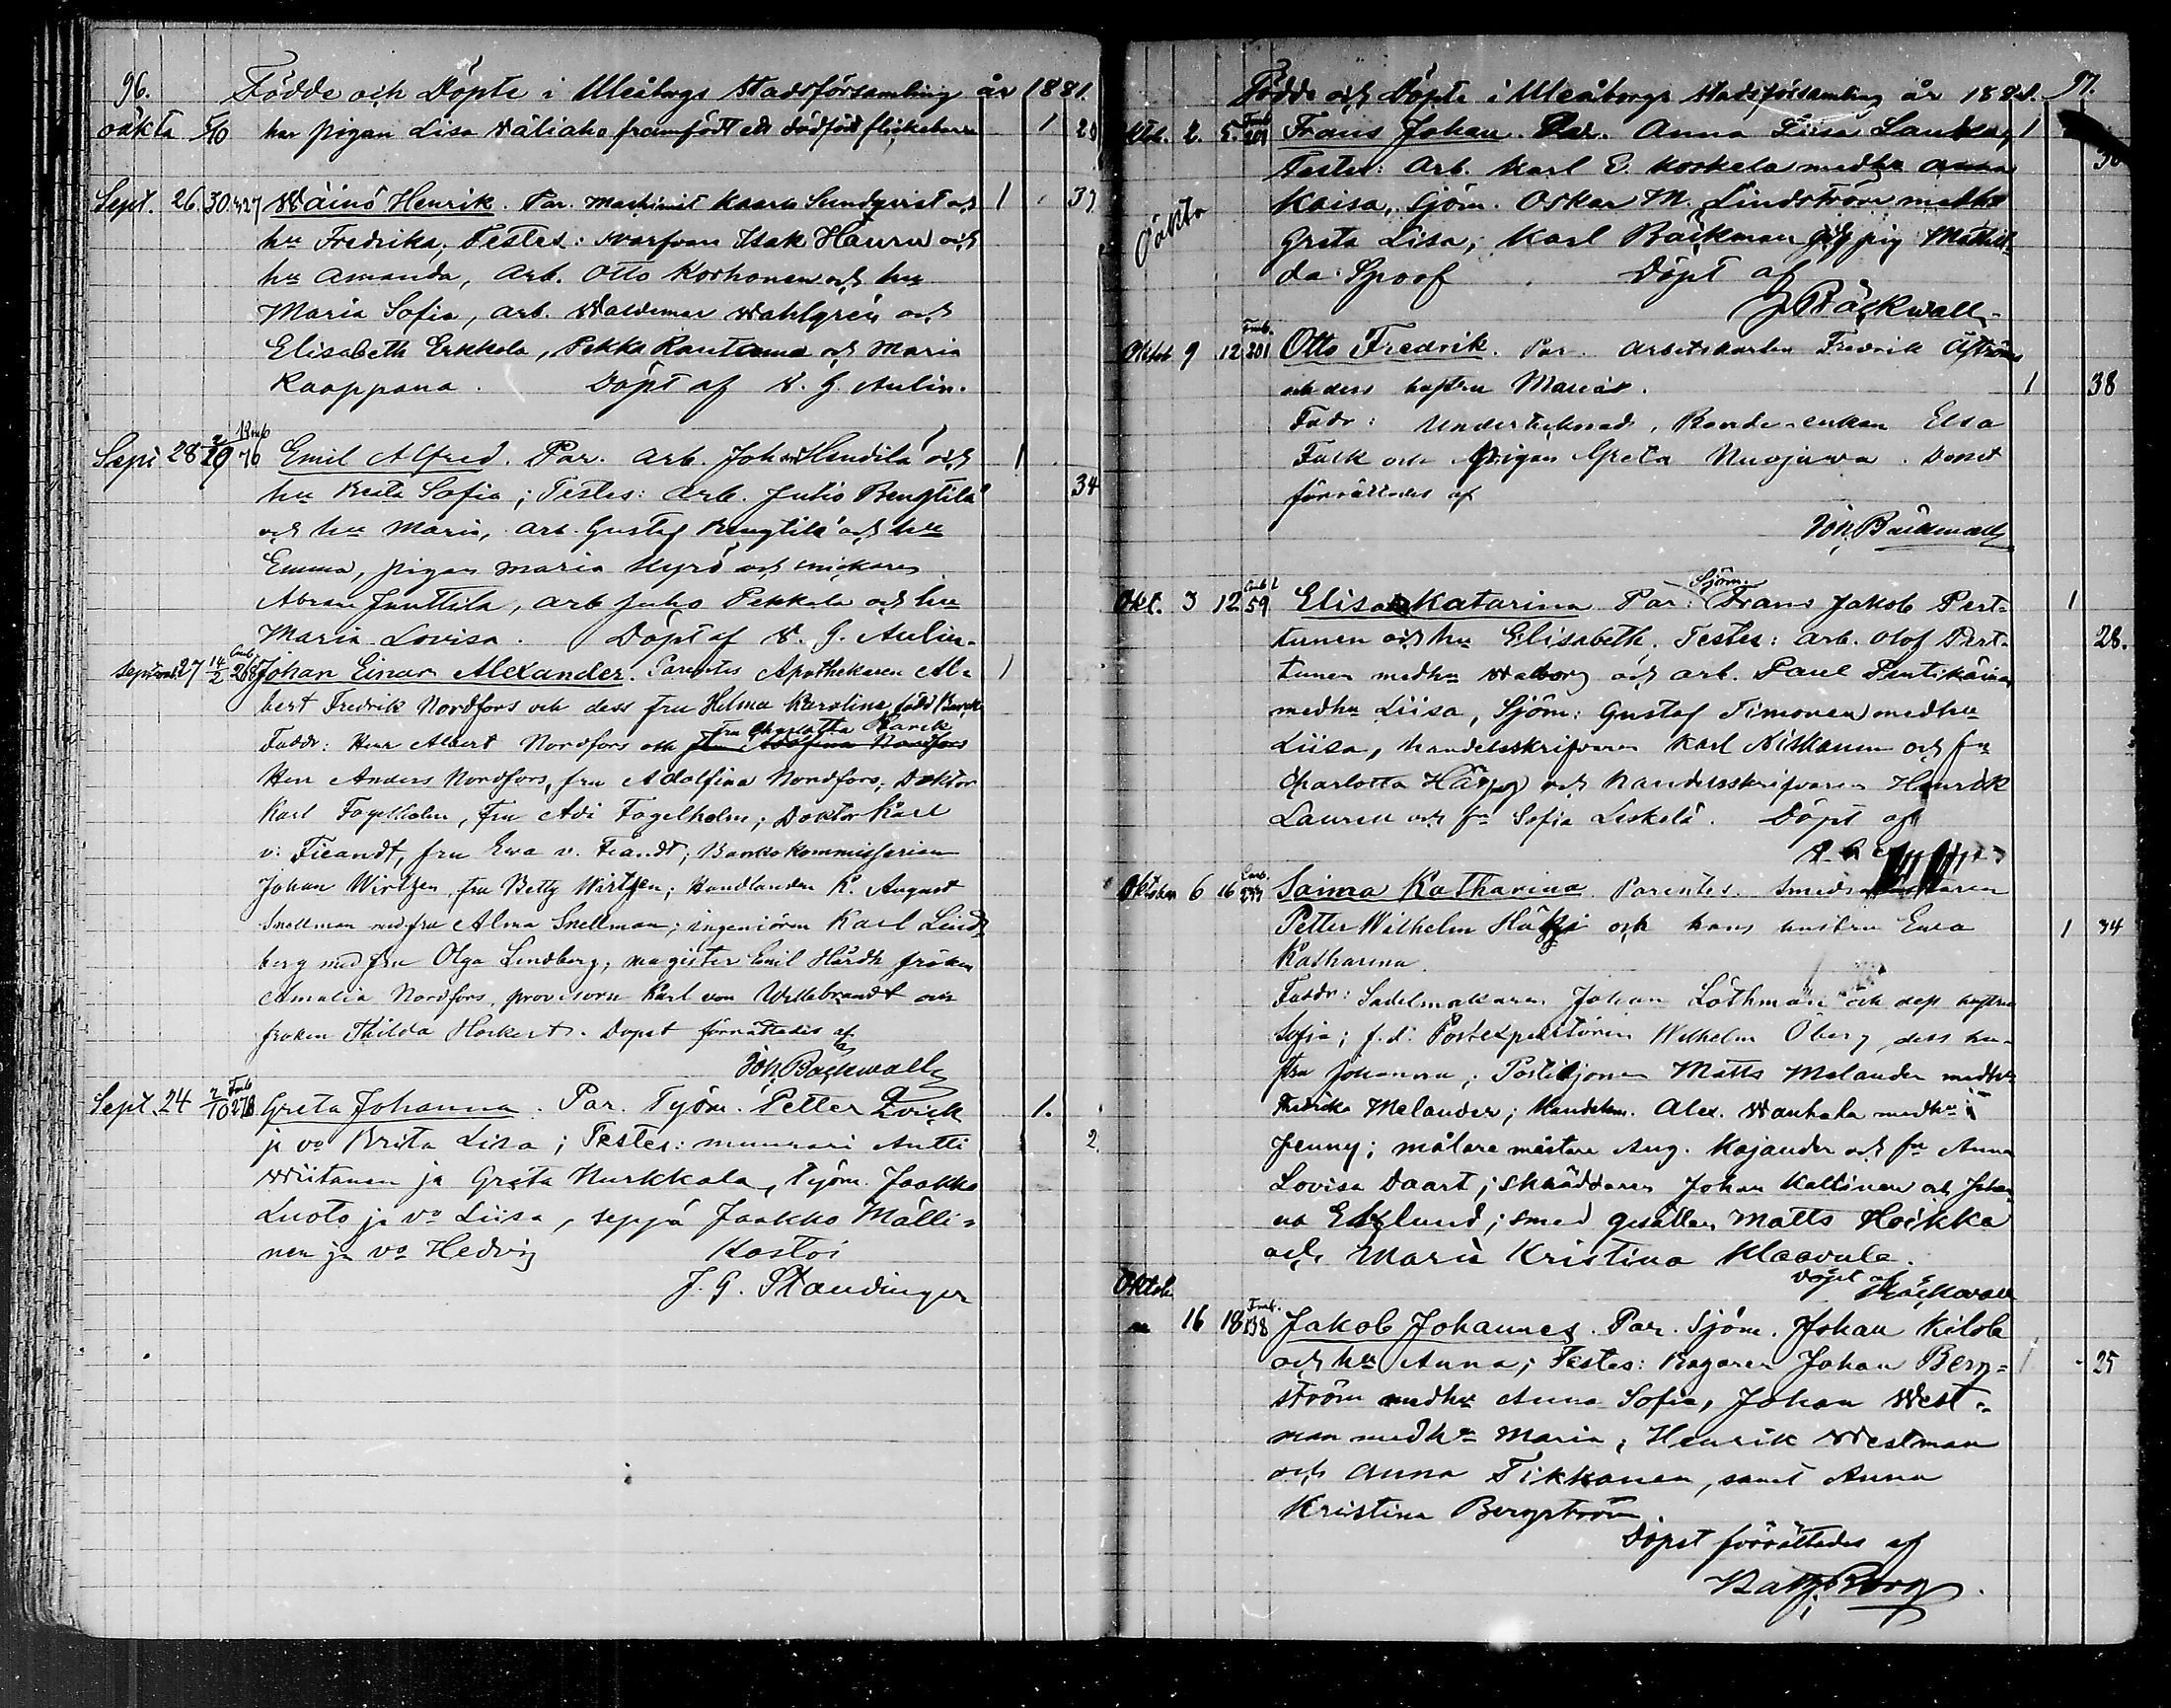 96. Födde och Döpte i Uleåborgs Stadsförsamling år 1881.
oäkta 5/10 har pigan Lisa Väliaho framfödt ett dödfödt flickebarn 1 20
Sept. 26. 30. 427 Wäinö Henrik. Par. Machinist Kaarle Sundqvist och 1 37
hu Fredrika; Testes: svarfvaren Isak Hauru och
hu Amanda, Arb. Otto Korhonen och hu
Maria Sofia, arb. Waldemar Wahlgrén och
Elisabeth Erkkola, Pekka Rautiama och Maria
Kaappana. Döpt af V. G. Aulin.
Sept 28 2/10 76 Emil Alfred. Par. Arb. Johan Hendilä och 1
hu Beata Sofia; Testes: Arb. Juho Bengtilä 34
och hu Maria, arb. Gustaf Bengtilä och hu
Emma, pigan Maria Hyrö och snickaren
Abram Junttila, arb Juho Pekkala och hu
Maria Lovisa. Döpt af V. G. Aulin.
Septemb. 27 14/2 268 Johan Einar Alexander. Parentes Apothekaren Al- 1
bert Fredrik Nordfors och dess fru Helma Karolina född
fru Charlotta
Faddr: Herr Albert Nordfors och fru Adolfina Nordfors
Herr Anders Nordfors, fru Adolfina Nordfors; Doktor
Karl Fagelholm, fru Adi Fagelholm; Doktor Karl
v. Fieandt, fru Ewa v. Fieandt; Bankokommissarien
Johan Wirtzen, fru Betty Wirtzen; Handlanden K. August
Snellman med fru Alma Snellman; ingeniören Karl Lind-
berg med fru Olga Lindberg, magister Emil Hårdh fröken
Amalia Nordfors, provisorn Karl von Willebrandt och
fröken Thilda Höckert. Dopet förrättades af
Joh. Bäckwall
Sept. 24 2/10 278 Greta Johanna. Par. Työm. Petter Zvick 1.
ja vo Brita Lisa; Testes: muurari Antti 2.
Wiitanen ja Greta Nurkkala, Työm. Jaakko
Luoto ja vo Liisa, seppä Jaakko Mälli-
nen ja vo Hedvig Kastoi
J. G. Standinger
Födde och Döpte i Uleåborgs stadsförsamling år 1881. 97.
Okt. 2. 5. 201 Frans Johan. Par. Anna Liisa 1
Testes: Arb. Karl E. Koskela med hu Anna
oäkta Kaisa, Sjöm. Oskar M. Lindström med hu
Greta Lisa; Karl Bäckman och pig Mathil-
da Spoof Döpt af
J. Bäckwall
Oktob 9 12 201 Otto Fredrik. Par. Arbetskarlen Fredrik Åström
och dess hustru Maria. 1 38
Fadr: Undertecknad, Bonde-enkan Elsa
Falk och pigan Greta Nuojuwa. Dopet
förrättades af
Joh. Bäckwall
Okt. 3 12 59 Elisa Katarina Par: Sjöm. Frans Jakob Pert- 1
tunen och hu Elisabeth. Testes: arb. Olof Pert- 28.
tunen med hu Walborg och arb. Paul Pentikäinen
med hu Liisa, Sjöm: Gustaf Timonen med hu
Liisa, handelsskrifvaren Karl Niskanen och fr
Charlotta och handelsskrifvaren Henrik
Lauren och fr Sofia Leskelä. Döpt af
Oktober 6 16 Saima Katharina Parentes.
Petter Wilhelm och hans hustru Ewa 1 34
Katharina.
Faddr: Sadelmakaren Johan Löthman och dess hustru
Sofia; f.d. Postexpeditören Wilhelm Öberg, dess hu-
stru Johanna; Postiljonen Matts Melander med hu
Fredrika Melander; Handelsm. Alex. Wanhala med hu
Jenny; målare mästare Aug. Kajander och fr Anna
Lovisa Daart; skräddaren Johan Kallinen och Johan-
na Eklund; smed gesällen Matts Hoikka
och Maria Kristina Klaavula.
Döpt af Bäckwall
Oktob.
16 18 138 Jakob Johannes. Par. Sjöm. Johan Kilola
och hu Anna; Testes: Bagaren Johan Berg- 1 25
ström med hu Anna Sofia, Johan West-
man med hu Maria, Henrik Westman
och Anna Tikkanen, samt Anna
Kristina Bergström.
Dopet förrättades af